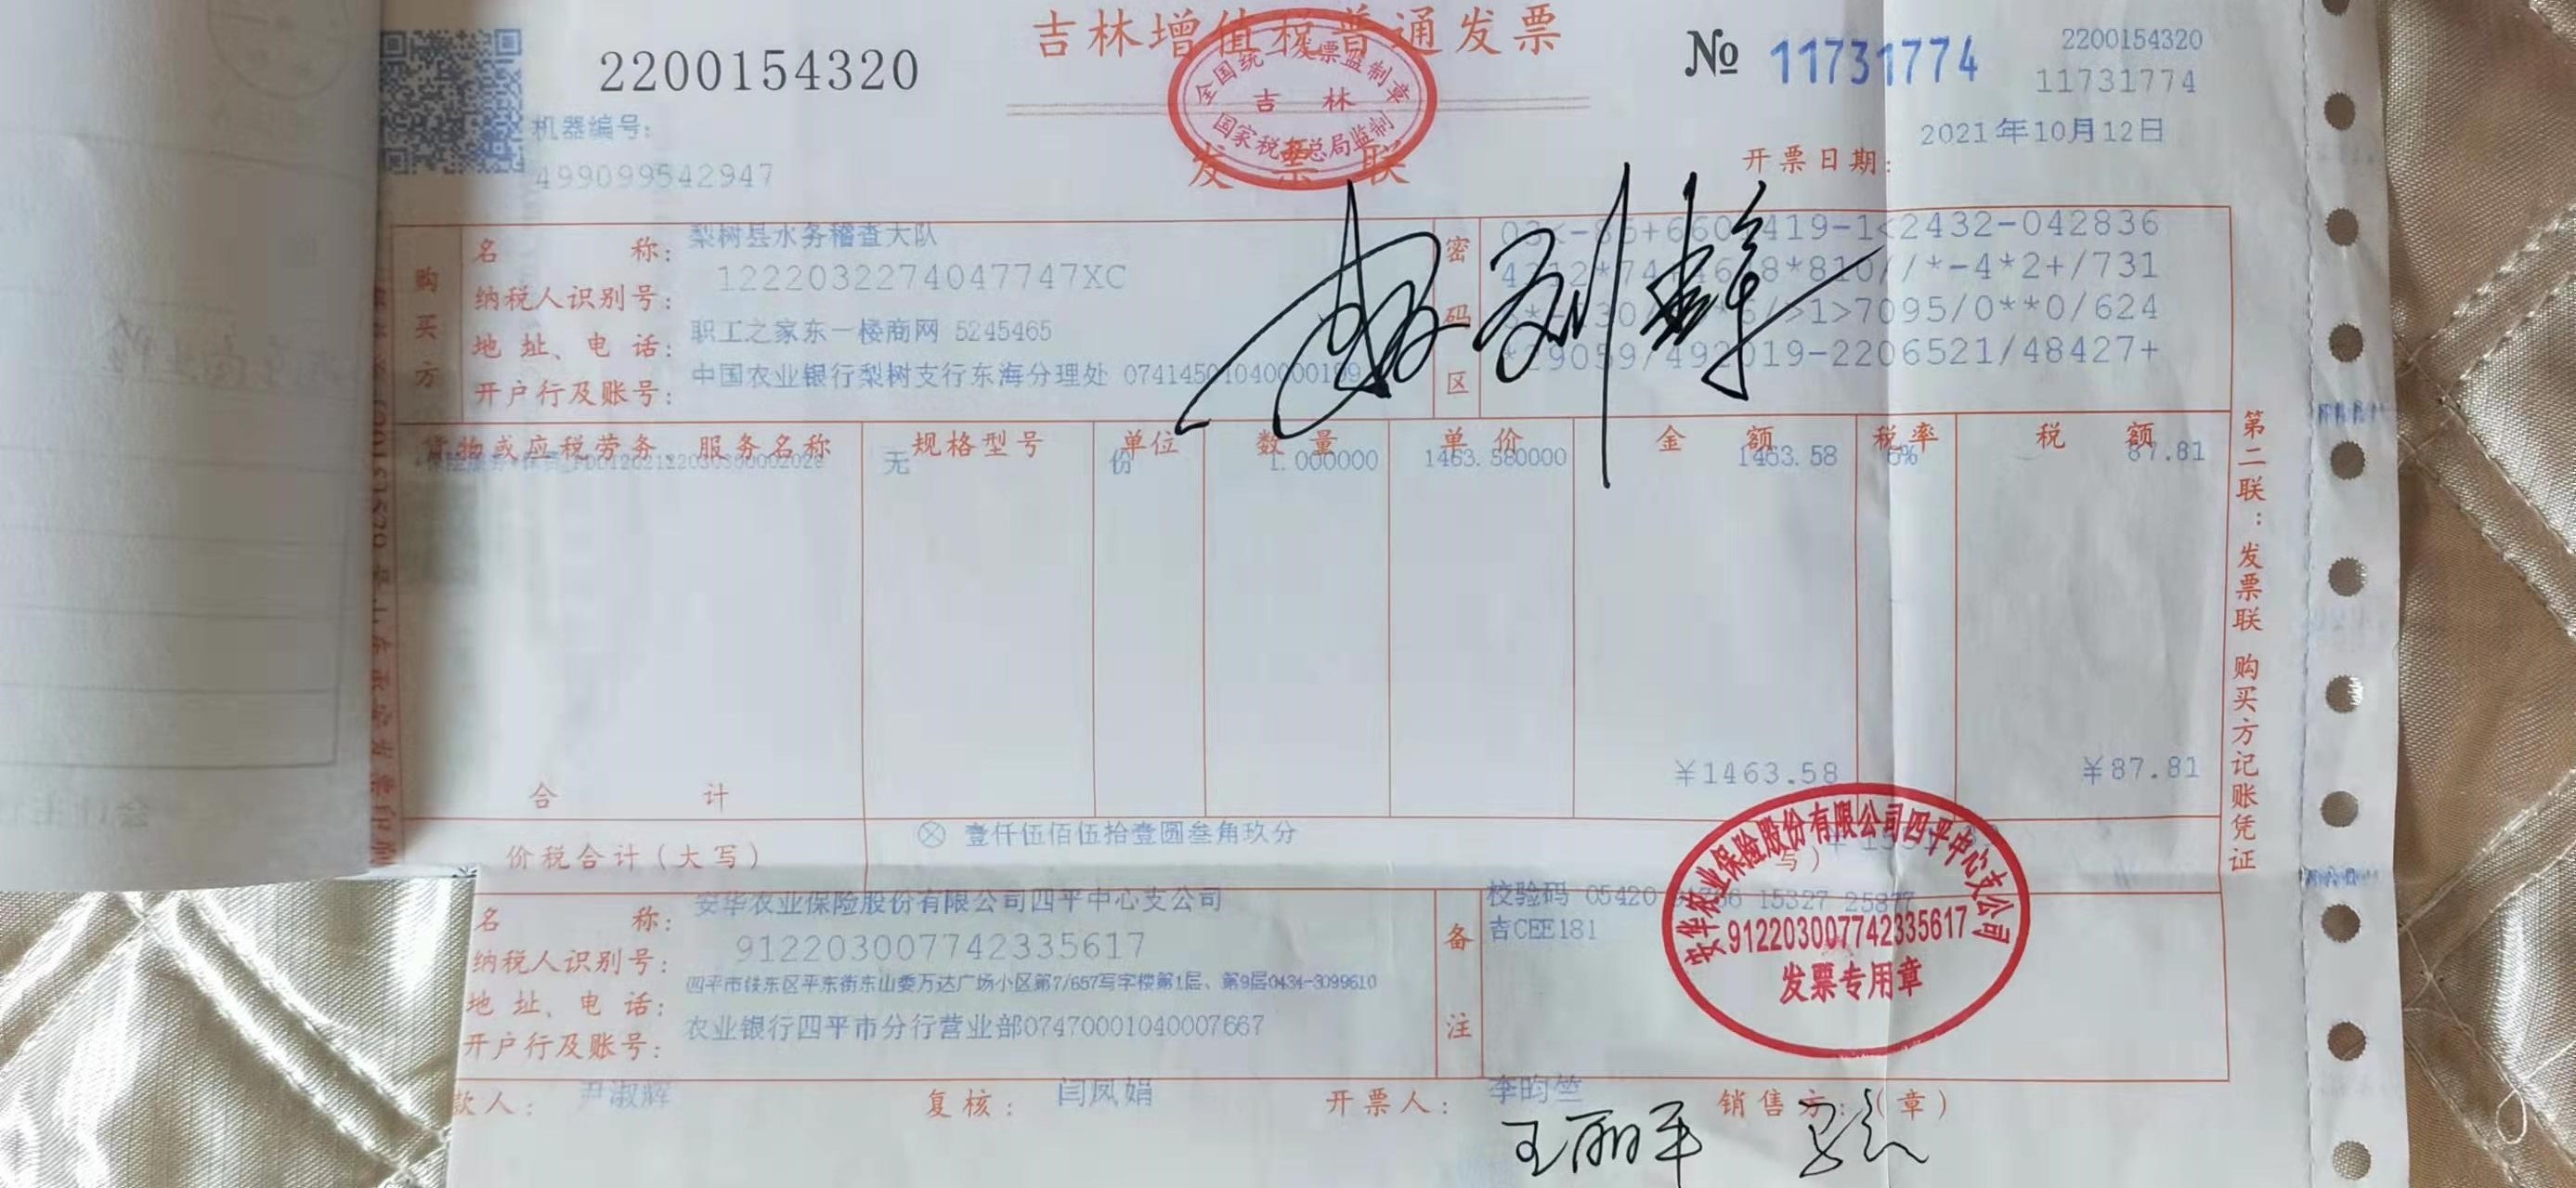 吉林增值税普通发票
2200154320
No 11731774
2200154320
11731774
全国统一发票监制章
吉 林
国家税务总局监制
发 票 联
机器编号:
499099542947
开票日期: 2021年10月12日
购买方
名 称: 梨树县水务稽查大队
纳税人识别号: 1222032274047747XC
地 址、电 话: 职工之家东一楼商网 5245465
开户行及账号: 中国农业银行梨树支行东海分理处
密码区
2432-042836
//*-4*2+/731
>1>7095/0**0/624
19-2206521/48427+
货物或应税劳务、服务名称 规格型号 单位 数 量 单 价 金 额 税率 税 额
无 份 1.000000 1463.580000 1463.58 6% 87.81
合 计 ¥1463.58 ¥87.81
价税合计(大写) 壹仟伍佰伍拾壹圆叁角玖分
写)
名 称: 安华农业保险股份有限公司四平中心支公司
纳税人识别号: 912203007742335617
地 址、电 话: 四平市铁东区平东街东山委万达广场小区第7/657写字楼第1层、第9层0434-3099610
开户行及账号: 农业银行四平市分行营业部07470001040007667
备注
校验码 05420 15327
吉CEE181
安华农业保险股份有限公司四平中心支公司
912203007742335617
发票专用章
款人: 尹淑辉 复核: 闫凤娟 开票人: 李昀竺 销售方:(章)
王丽军
第二联:发票联 购买方记账凭证